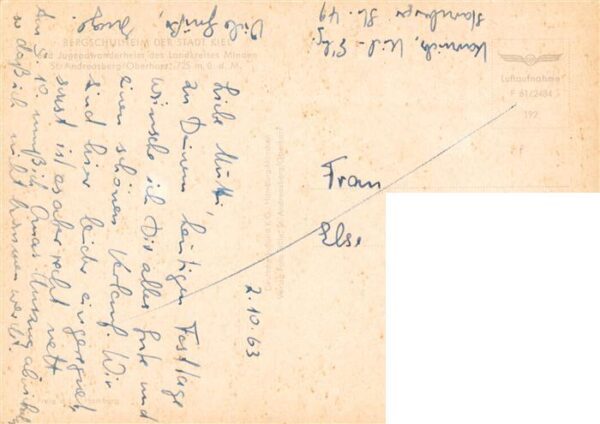 BERGSCHULHEIM DER STADT KIEL
und Jugendwanderheim des Landkreises Minden
St. Andreasberg/Oberharz, 725 m. ü. d. M.
Luftaufnahme
F 61/2484
192
2.10.63
Liebe Mutti,
zu Deinem heutigen Festtage
wünsche ich Dir alles Gute und
einen schönen Verlauf. Wir
sind hier leider eingeregnet,
sonst ist es aber recht nett.
Am 5.10. muß ich Omas Umzug
so daß ich nicht kommen werde.
Viele Grüße,
Inge.
Hamburger Str. 49
Frau
Else